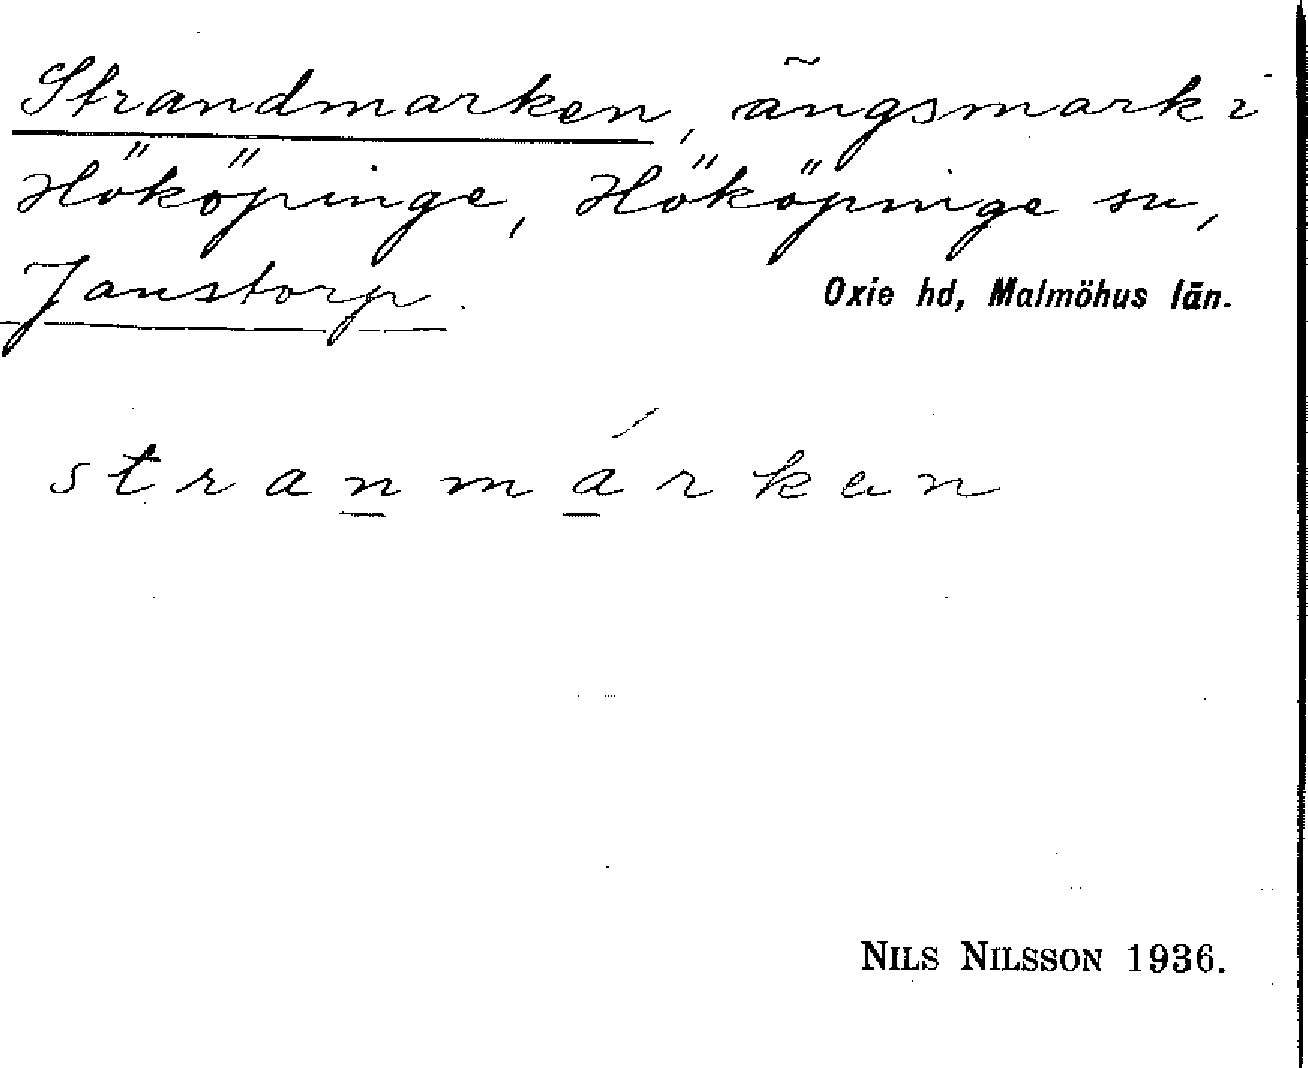 Strandmarken, ängsmark i
Hököpinge, Hököpinge sn,
Janstorp.
Oxie hd, Malmöhus län.
stranmárken
NILS NILSSON 1936.